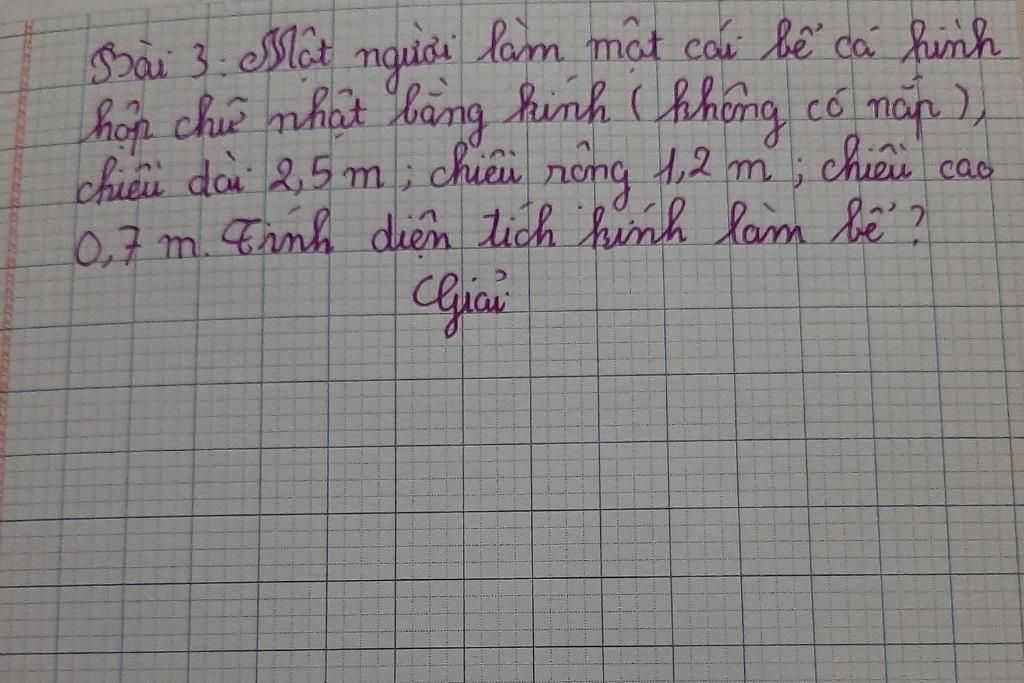 Bài 3: Một người làm một cái bể cá hình
hộp chữ nhật bằng kính (không có nắp),
chiều dài 2,5 m; chiều rộng 1,2 m; chiều cao
0,7 m. Tính diện tích kính làm bể?
Giải